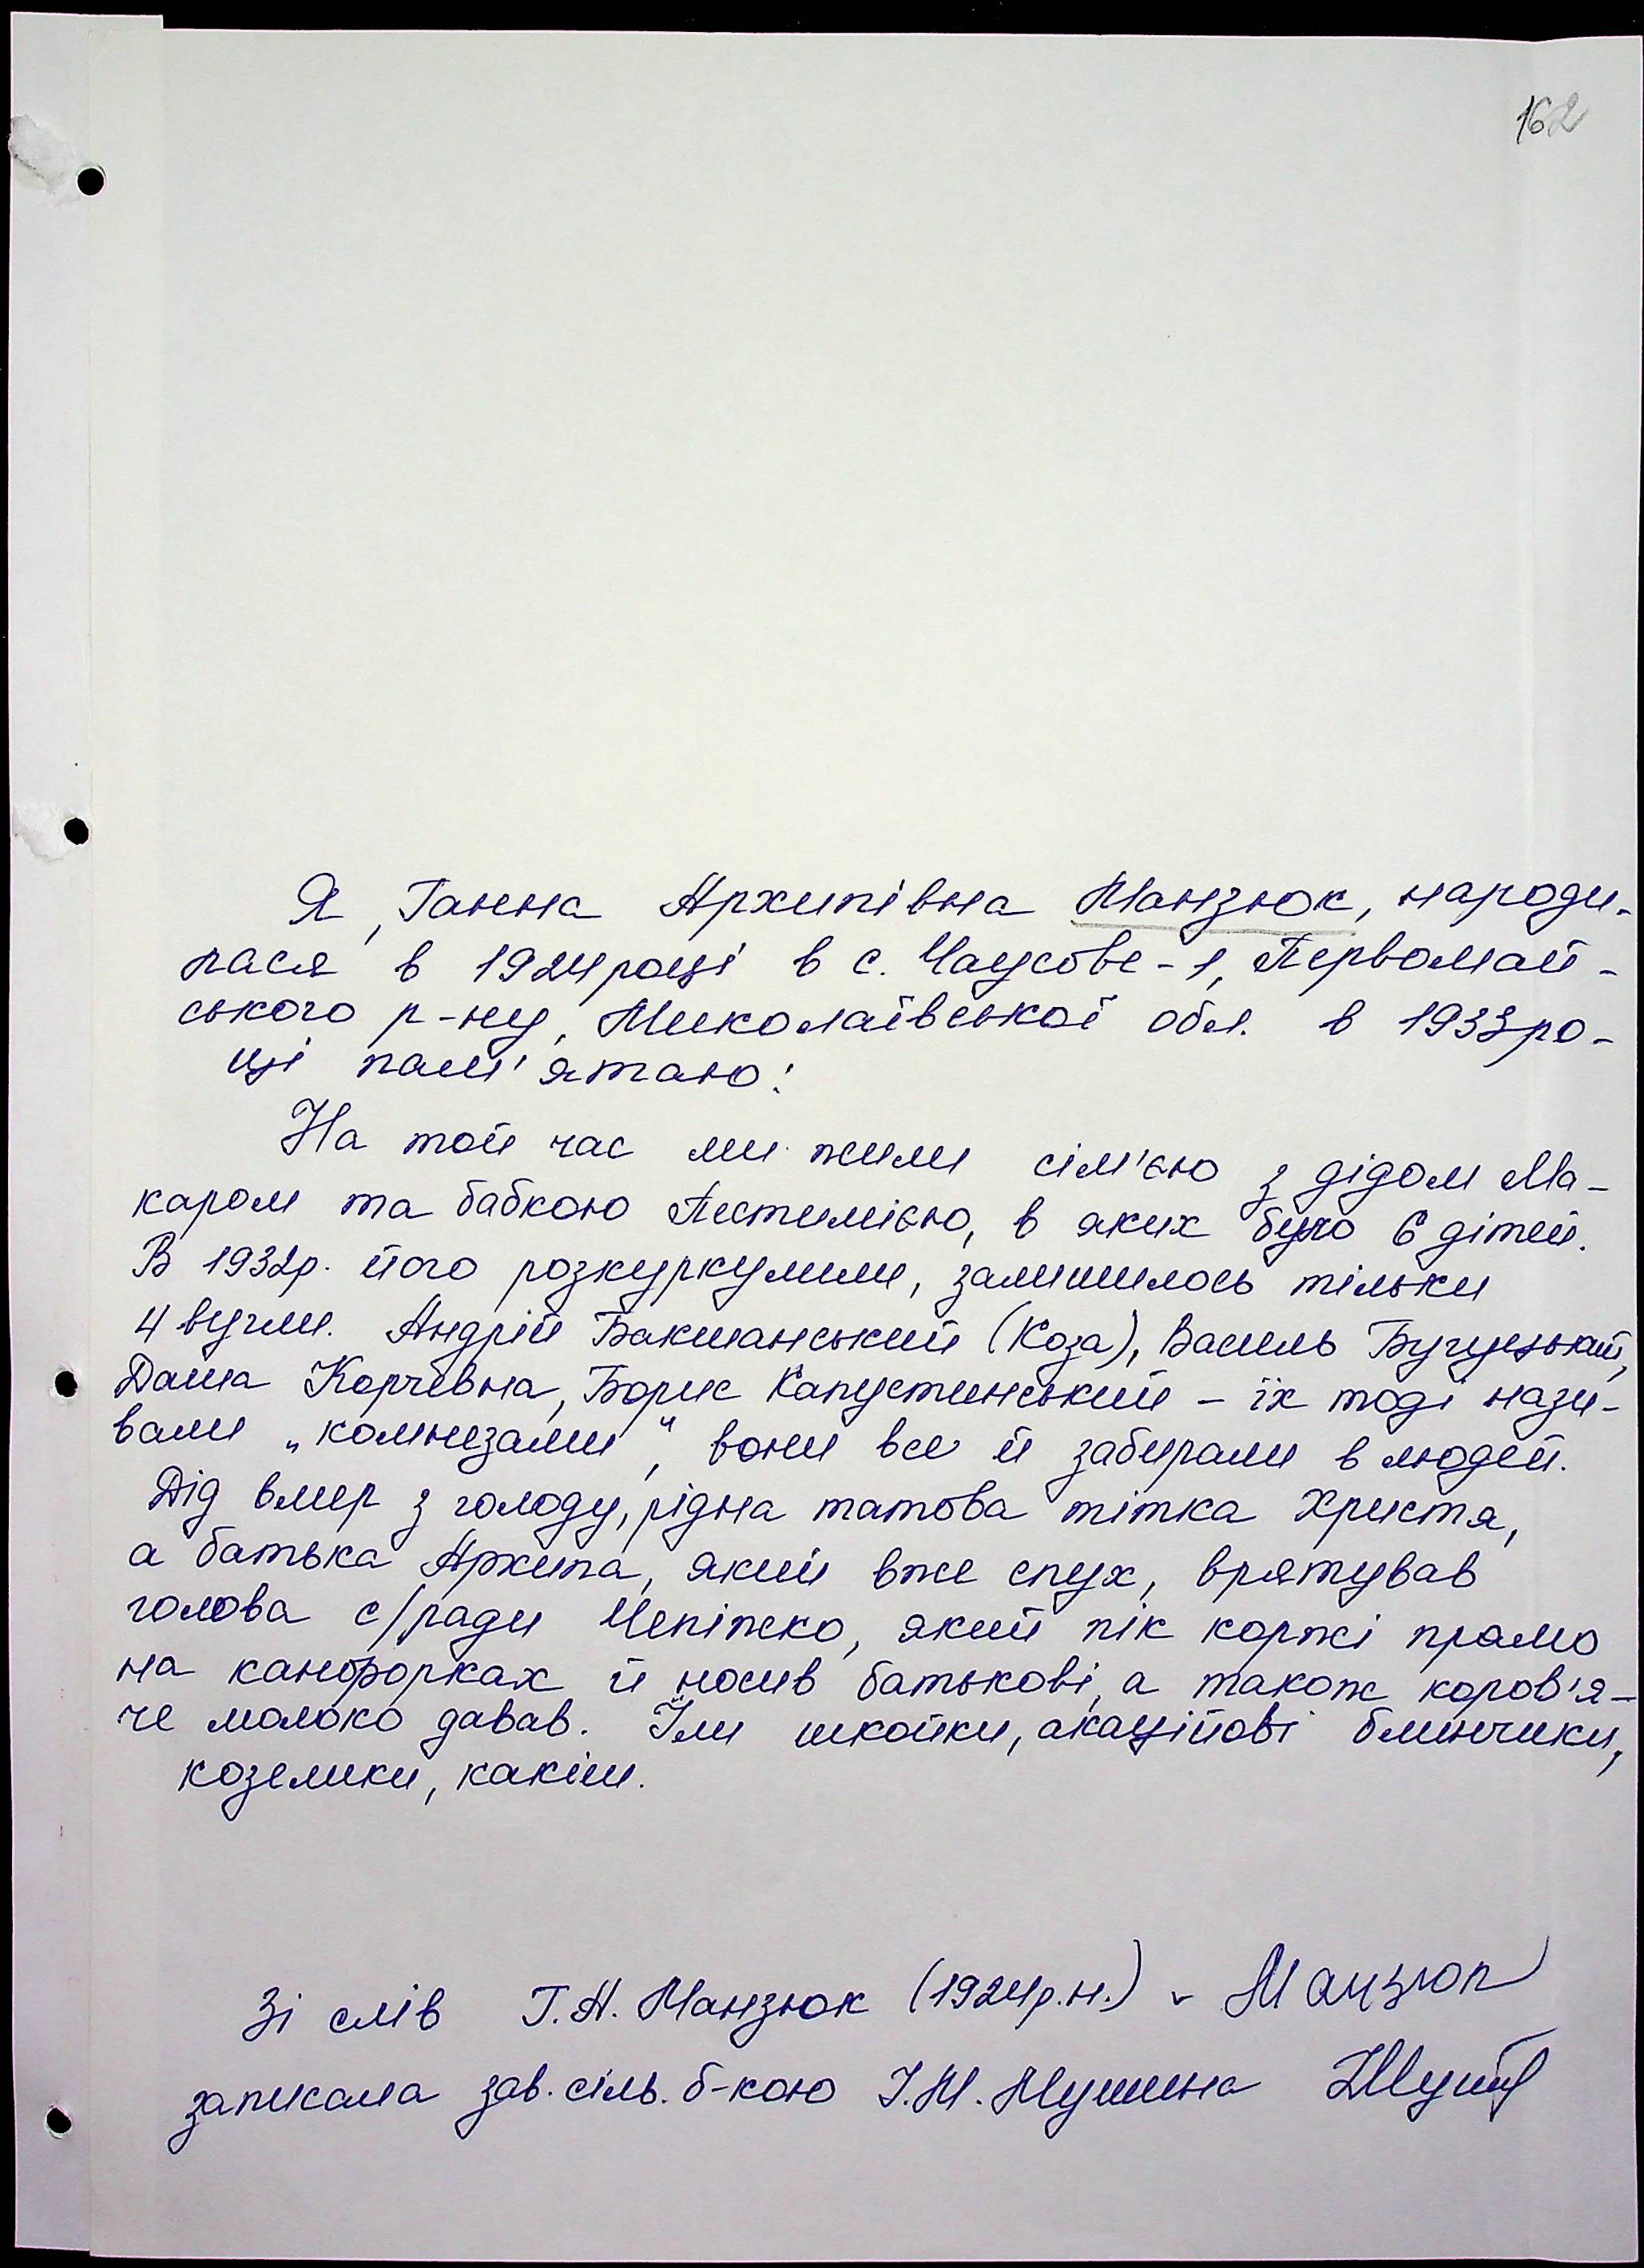 162
Я, Ганна Архипівна Манзюк, народи-
лася в 1924 році в с. Чаусове-1, Первомай-
ського р-ну, Миколаївської обл. в 1933 ро-
ці пам'ятаю:
На той час ми жили сім'єю з дідом Ма-
каром та бабкою Пестимією, в яких було 6 дітей.
В 1932р. його розкуркулили, залишилось тільки
4 вугли. Андрій Бакшанський (Коза), Василь Бугуцький,
Даша Корчевна, Борис Капустинський - їх тоді нази-
вали „комнезами", вони все й забирали в людей.
Дід вмер з голоду, рідна татова тітка Христя,
а батька Архипа, який вже спух, врятував
голова с/ради Чепіжко, який пік коржі прямо
на канфорках й носив батькові, а також коров'я-
че молоко давав. Їли шкойки, акаційові блинчики,
козелики, какіш.
Зі слів Г.А. Манзюк (1924р.н.) v Манзюк
записала зав. сіль. б-кою І.М. Мушина